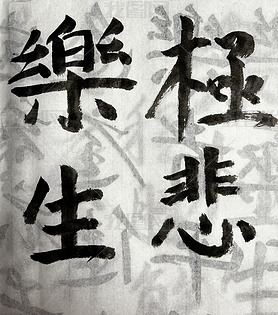 樂極
生悲